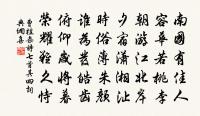 南國有佳人
容華若桃李
朝游江北岸
夕宿瀟湘沚
時俗薄朱顏
誰為發皓齒
俯仰歲將暮
榮耀難久恃
曹植雜詩七首其四詞
典網